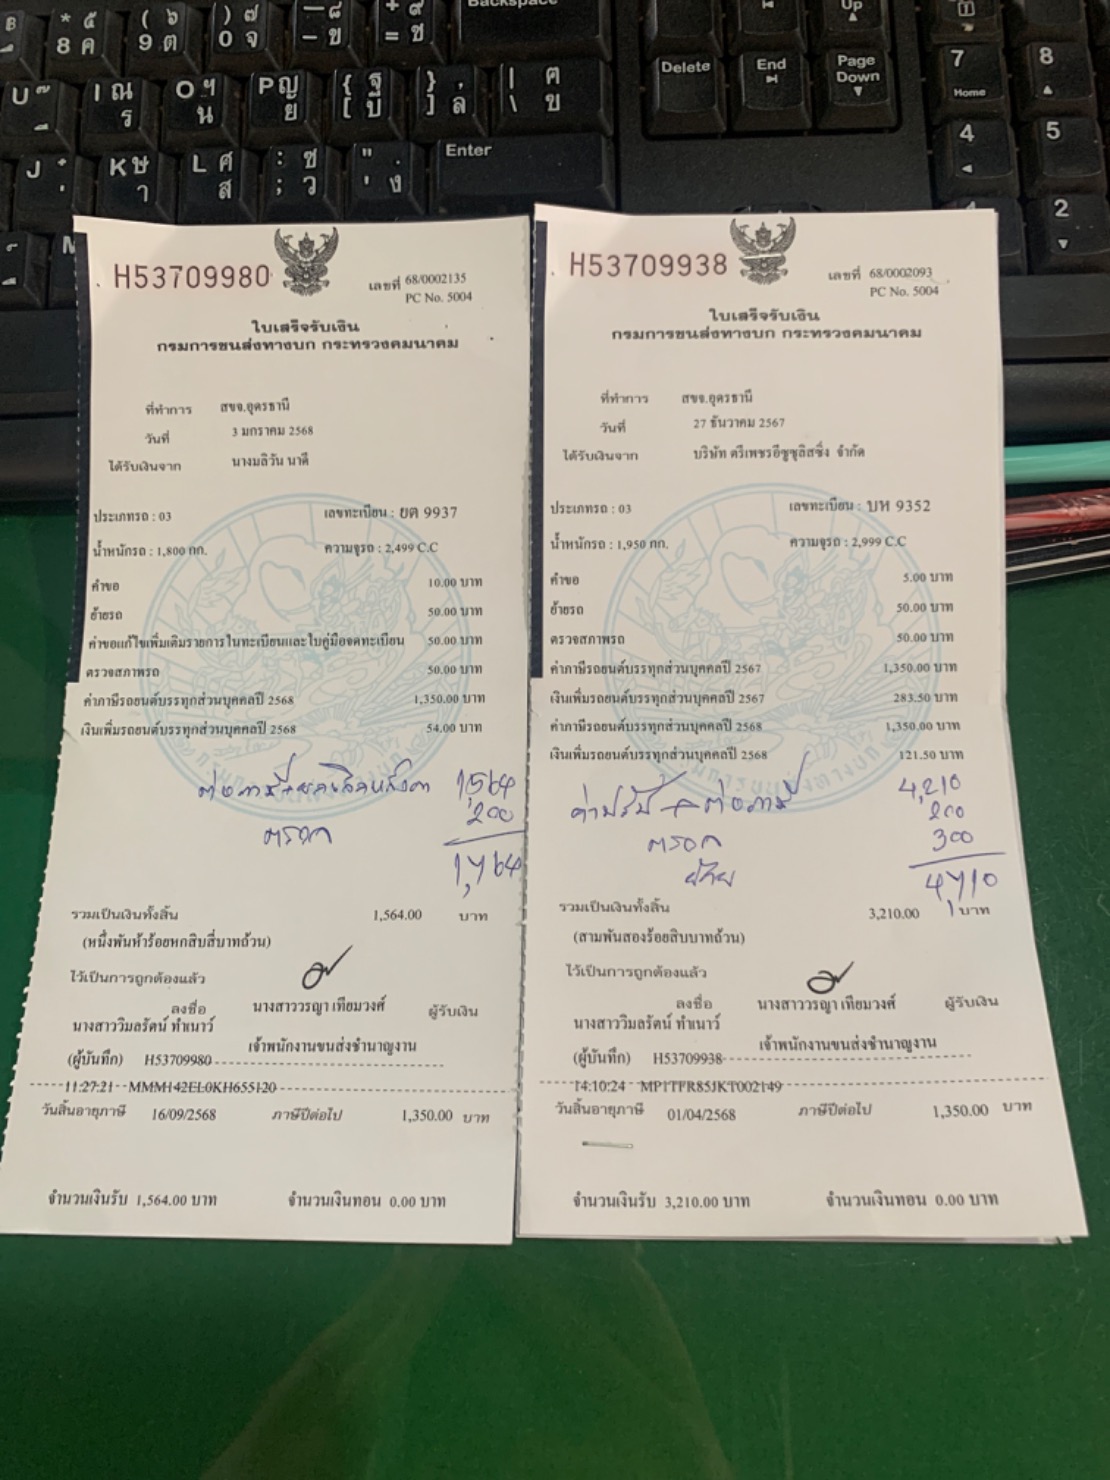 Backspace
* ๕
8 ค
( ๖
9 ต
) ๗
0 จ
— ๘
- ข
+ ๙
= ช
Delete
End
Page
Down
Up
7
Home
8
4
5
2
U
I ณ
ร
O ฯ
น
P ญ
ย
{ ฐ
[ บ
} ,
] ล
| ฅ
\ ฃ
J
K ษ
า
L ศ
ส
: ซ
; ว
" .
' ง
Enter
H53709980
เลขที่ 68/0002135
PC No. 5004
ใบเสร็จรับเงิน
กรมการขนส่งทางบก กระทรวงคมนาคม
ที่ทำการ สขจ.อุดรธานี
วันที่ 3 มกราคม 2568
ได้รับเงินจาก นางมลิวัน นาดี
ประเภทรถ : 03 เลขทะเบียน : ยต 9937
น้ำหนักรถ : 1,800 กก. ความจุรถ : 2,499 C.C
คำขอ 10.00 บาท
ย้ายรถ 50.00 บาท
ค่าขอแก้ไขเพิ่มเติมรายการในทะเบียนและใบคู่มือจดทะเบียน 50.00 บาท
ตรวจสภาพรถ 50.00 บาท
ค่าภาษีรถยนต์บรรทุกส่วนบุคคลปี 2568 1,350.00 บาท
เงินเพิ่มรถยนต์บรรทุกส่วนบุคคลปี 2568 54.00 บาท
1,564
ตรอ 200
1,764
รวมเป็นเงินทั้งสิ้น 1,564.00 บาท
(หนึ่งพันห้าร้อยหกสิบสี่บาทถ้วน)
ไว้เป็นการถูกต้องแล้ว
ลงชื่อ นางสาววรญา เทียมวงศ์ ผู้รับเงิน
นางสาววิมลรัตน์ ทำเนาว์
เจ้าพนักงานขนส่งชำนาญงาน
(ผู้บันทึก) H53709980
11:27:21 MMM142EL0KH655120
วันสิ้นอายุภาษี 16/09/2568 ภาษีปีต่อไป 1,350.00 บาท
จำนวนเงินรับ 1,564.00 บาท จำนวนเงินทอน 0.00 บาท
H53709938
เลขที่ 68/0002093
PC No. 5004
ใบเสร็จรับเงิน
กรมการขนส่งทางบก กระทรวงคมนาคม
ที่ทำการ สขจ.อุดรธานี
วันที่ 27 ธันวาคม 2567
ได้รับเงินจาก บริษัท ตรีเพชรอีซูซุลิสซิ่ง จำกัด
ประเภทรถ : 03 เลขทะเบียน : บห 9352
น้ำหนักรถ : 1,950 กก. ความจุรถ : 2,999 C.C
คำขอ 5.00 บาท
ย้ายรถ 50.00 บาท
ตรวจสภาพรถ 50.00 บาท
ค่าภาษีรถยนต์บรรทุกส่วนบุคคลปี 2567 1,350.00 บาท
เงินเพิ่มรถยนต์บรรทุกส่วนบุคคลปี 2567 283.50 บาท
ค่าภาษีรถยนต์บรรทุกส่วนบุคคลปี 2568 1,350.00 บาท
เงินเพิ่มรถยนต์บรรทุกส่วนบุคคลปี 2568 121.50 บาท
ค่าปรับ + ต่อภาษี 4,210
ตรอ 200
ย้าย 300
4,710
รวมเป็นเงินทั้งสิ้น 3,210.00 บาท
(สามพันสองร้อยสิบบาทถ้วน)
ไว้เป็นการถูกต้องแล้ว
ลงชื่อ นางสาววรญา เทียมวงศ์ ผู้รับเงิน
นางสาววิมลรัตน์ ทำเนาว์
เจ้าพนักงานขนส่งชำนาญงาน
(ผู้บันทึก) H53709938
14:10:24 MP1TFR85JKT002149
วันสิ้นอายุภาษี 01/04/2568 ภาษีปีต่อไป 1,350.00 บาท
จำนวนเงินรับ 3,210.00 บาท จำนวนเงินทอน 0.00 บาท